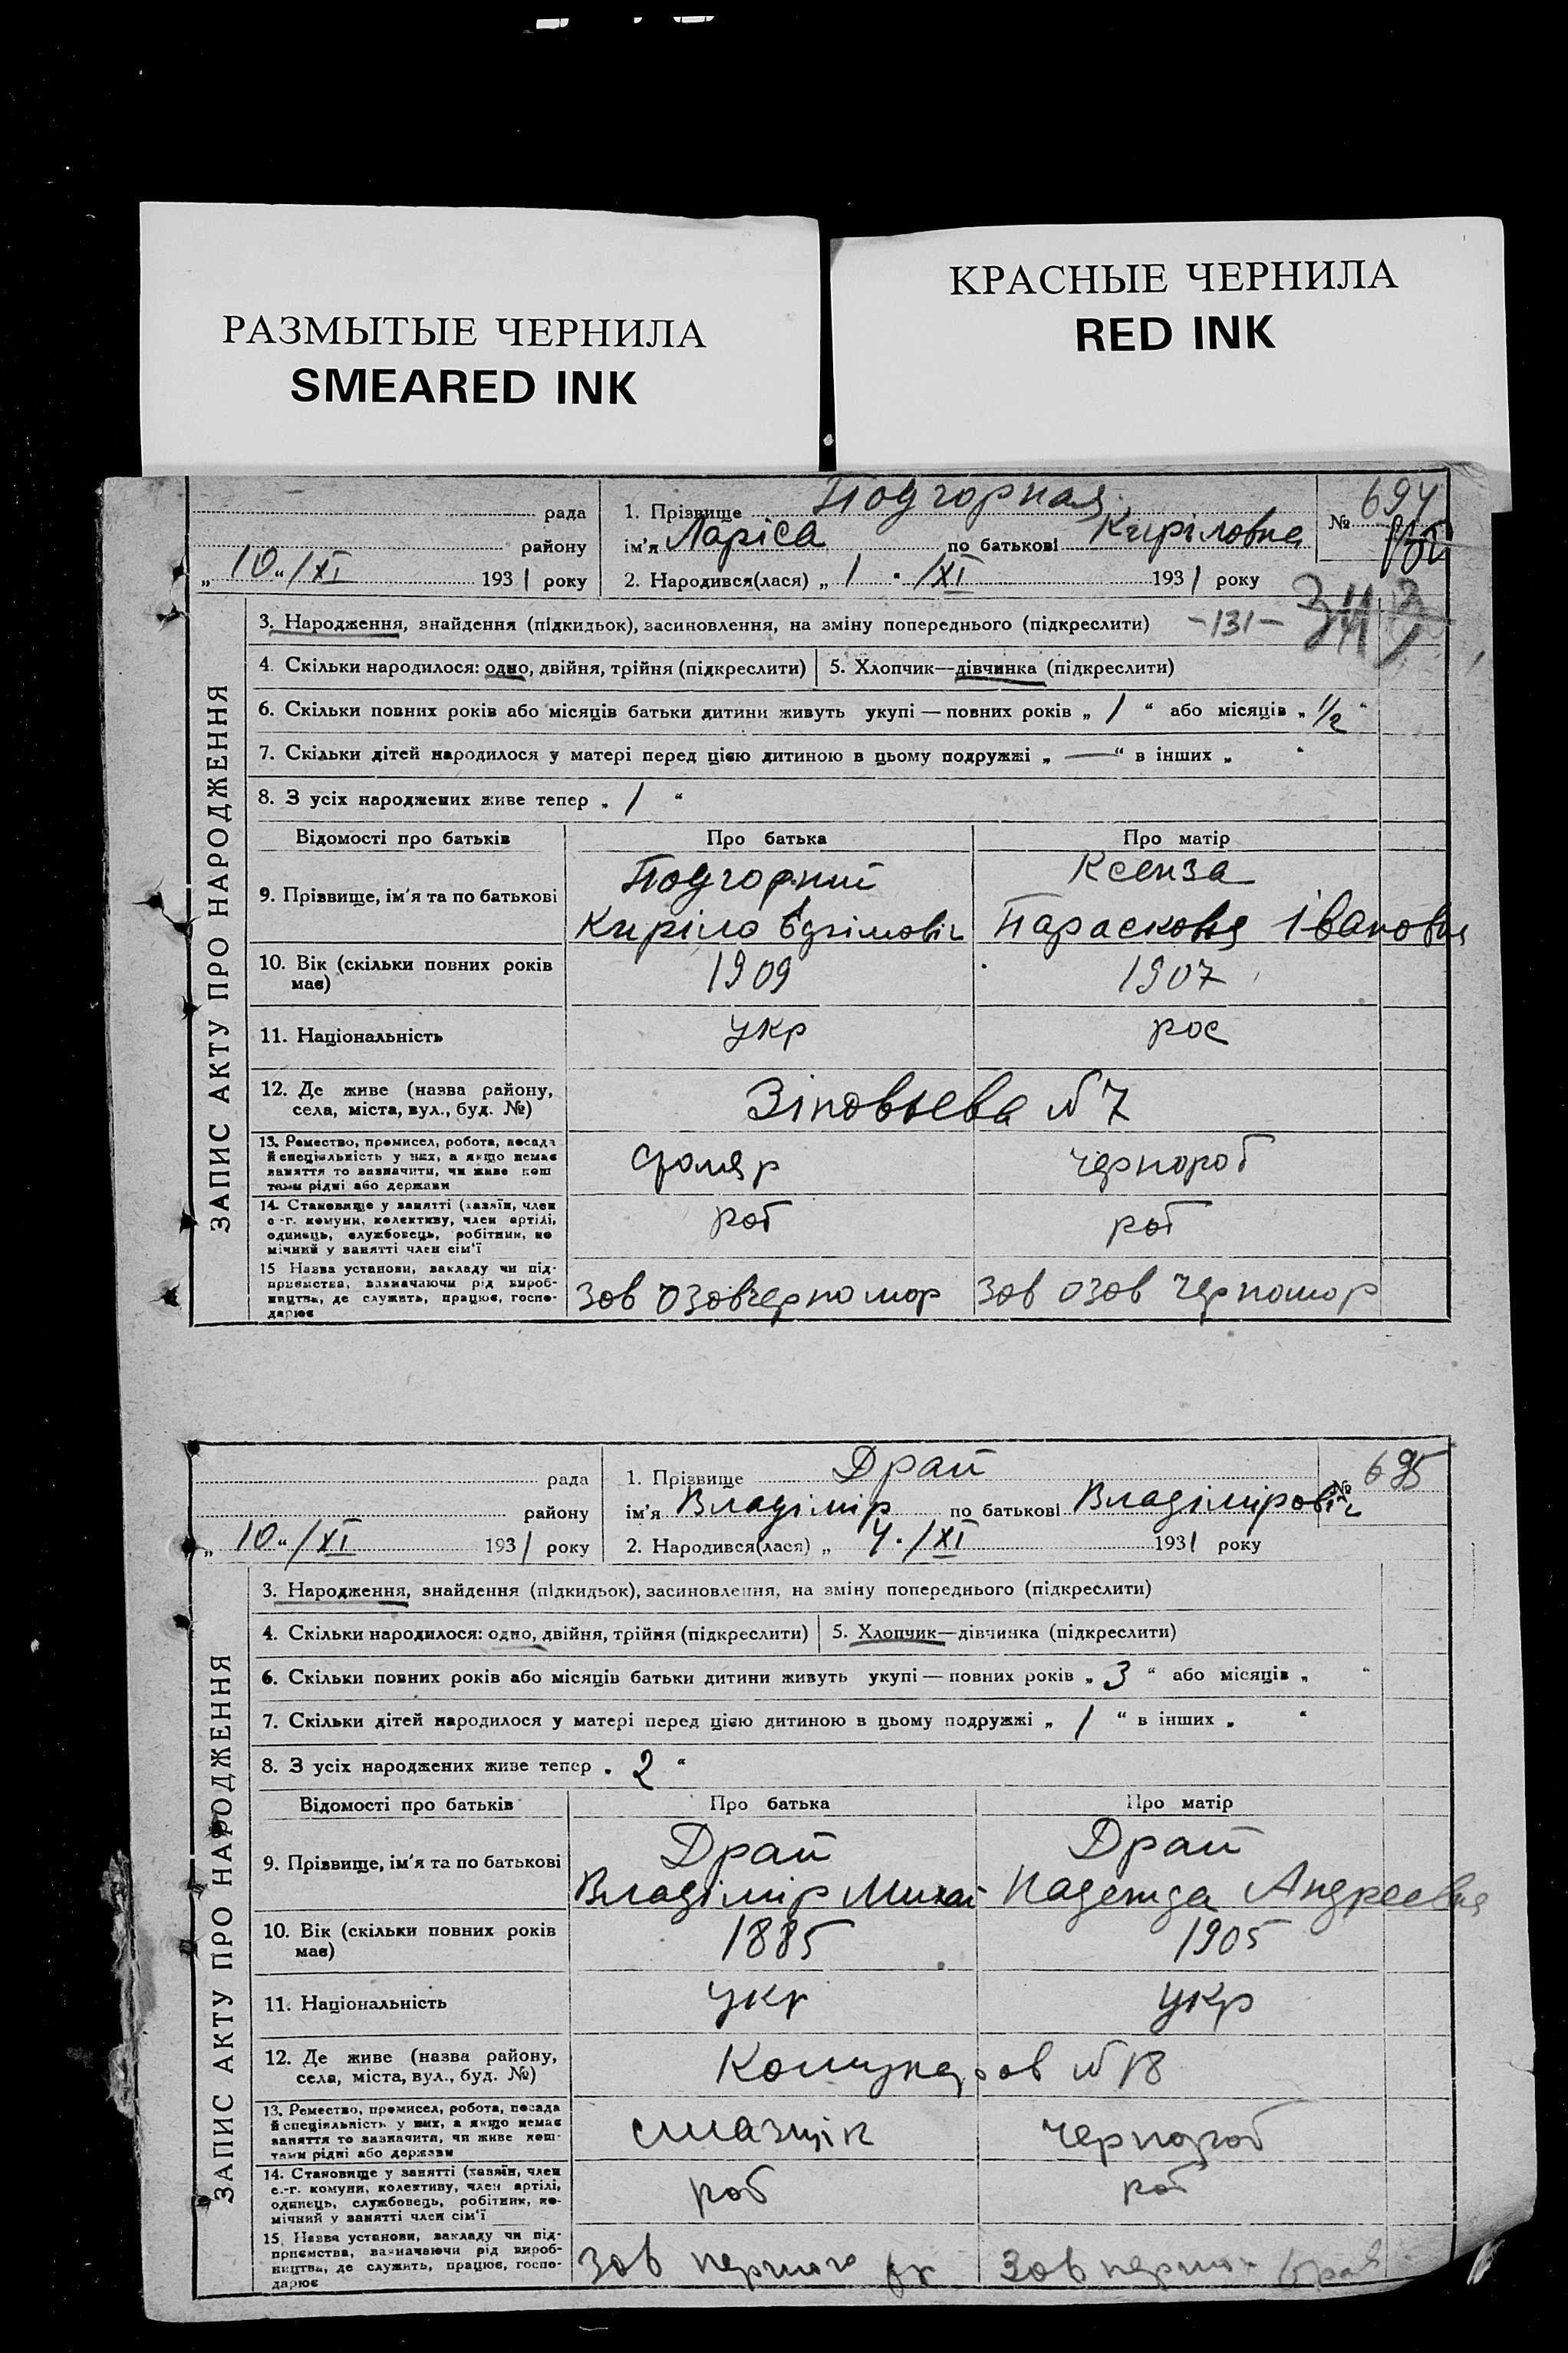 РАЗМЫТЫЕ ЧЕРНИЛА
SMEARED INK
КРАСНЫЕ ЧЕРНИЛА
RED INK
рада
району
„ 10 " / XI 1931 року
1. Прізвище Подгорная
ім'я Ларіса по батькові Кирілловна
2. Народився(лася) „ 1 " / XI 1931 року
№ 694
3. Народження, знайдення (підкидьок), засиновлення, на зміну попереднього (підкреслити) -131-
4. Скільки народилося: одно, двійня, трійня (підкреслити) 5. Хлопчик—дівчинка (підкреслити)
6. Скільки повних років або місяців батьки дитини живуть укупі — повних років „ 1 " або місяців „ 1/2 "
7. Скільки дітей народилося у матері перед цією дитиною в цьому подружжі „ — " в інших „ "
8. З усіх народжених живе тепер „ 1 "
Відомості про батьків Про батька Про матір
9. Прізвище, ім'я та по батькові
Подгорний
Киріло
Ксенза
Парасковя Івановна
10. Вік (скільки повних років має) 1909 1907
11. Національність укр рос
12. Де живе (назва району, села, міста, вул., буд. №) Зіновьева №7
13. Ремество, промисел, робота, посада й спеціяльність у них, а якщо немає заняття то зазначити, чи живе кош тами рідні або держави столяр чернороб
14. Становище у занятті (хазяїн, член с.-г. комуни, колективу, член артілі, одинець, службовець, робітник, по мічний у занятті член сім'ї роб роб
15 Назва установи, закладу чи під- приємства, зазначаючи рід вироб- ництва, де служить, працює, госпо- дарює зов Озовчерномор зов Озов Черномор
ЗАПИС АКТУ ПРО НАРОДЖЕННЯ
рада
району
„ 10 " / XI 1931 року
1. Прізвище Драй
ім'я Владімір по батькові Владіміровіч
2. Народився(лася) „ 4 " / XI 1931 року
№ 695
3. Народження, знайдення (підкидьок), засиновлення, на зміну попереднього (підкреслити)
4. Скільки народилося: одно, двійня, трійня (підкреслити) 5. Хлопчик—дівчинка (підкреслити)
6. Скільки повних років або місяців батьки дитини живуть укупі — повних років „ 3 " або місяців „ "
7. Скільки дітей народилося у матері перед цією дитиною в цьому подружжі „ 1 " в інших „ "
8. З усіх народжених живе тепер „ 2 "
Відомості про батьків Про батька Про матір
9. Прізвище, ім'я та по батькові
Драй
Владімір Михай
Драй
Надежда Андреевна
10. Вік (скільки повних років має) 1885 1905
11. Національність укр укр
12. Де живе (назва району, села, міста, вул., буд. №) Комунаров №18
13. Ремество, промисел, робота, посада й спеціяльність у них, а якщо немає заняття то зазначити, чи живе кош- тами рідні або держави смазщік чернороб
14. Становище у занятті (хазяїн, член с.-г. комуни, колективу, член артілі, одинець, службовець, робітник, по- мічний у занятті член сім'ї роб роб
15. Назва установи, закладу чи під- приємства, зазначаючи рід вироб- ництва, де служить, працює, госпо- дарює Зов Зов
ЗАПИС АКТУ ПРО НАРОДЖЕННЯ